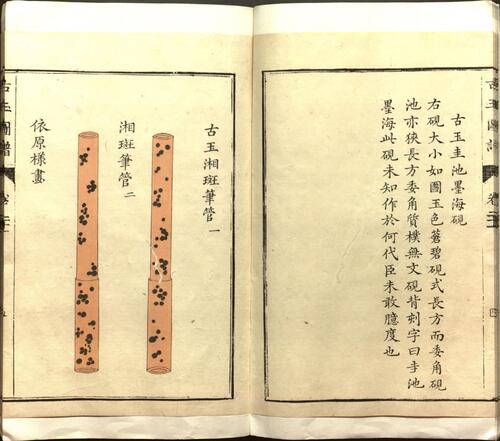 古玉圭池墨海硯
右硯大小如圖玉色蒼碧硯式長方而委角硯
池亦狹長方委角質樸無文硯背刻字曰圭池
墨海此硯未知作於何代臣未敢臆度也
四
古玉湘斑筆管一
湘斑筆管二
依原樣畫
古玉圖譜
五